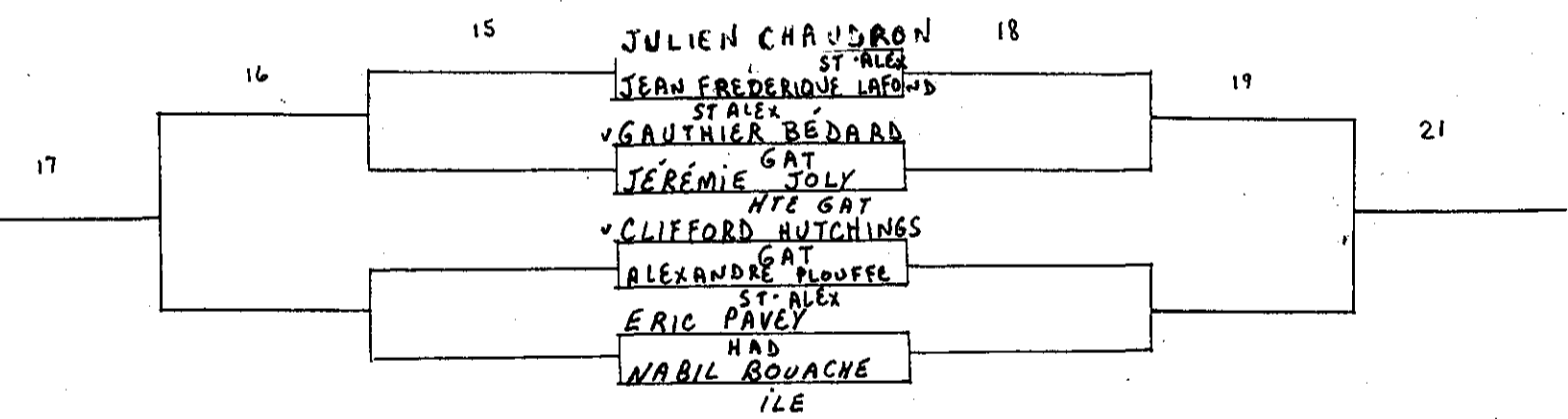 15
JULIEN CHAUDRON
18
ST-ALEX
16
JEAN FRÉDERIQUE LAFOND
19
ST ALEX
✓ GAUTHIER BÉDARD
21
17
GAT
JÉRÉMIE JOLY
HTE GAT
✓ CLIFFORD HUTCHINGS
GAT
ALEXANDRE PLOUFFE
ST-ALEX
ERIC PAVEY
HAD
NABIL BOUACHE
ÎLE